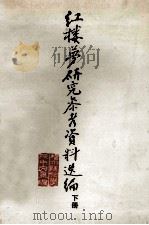 红楼梦研究参考资料选编
下册